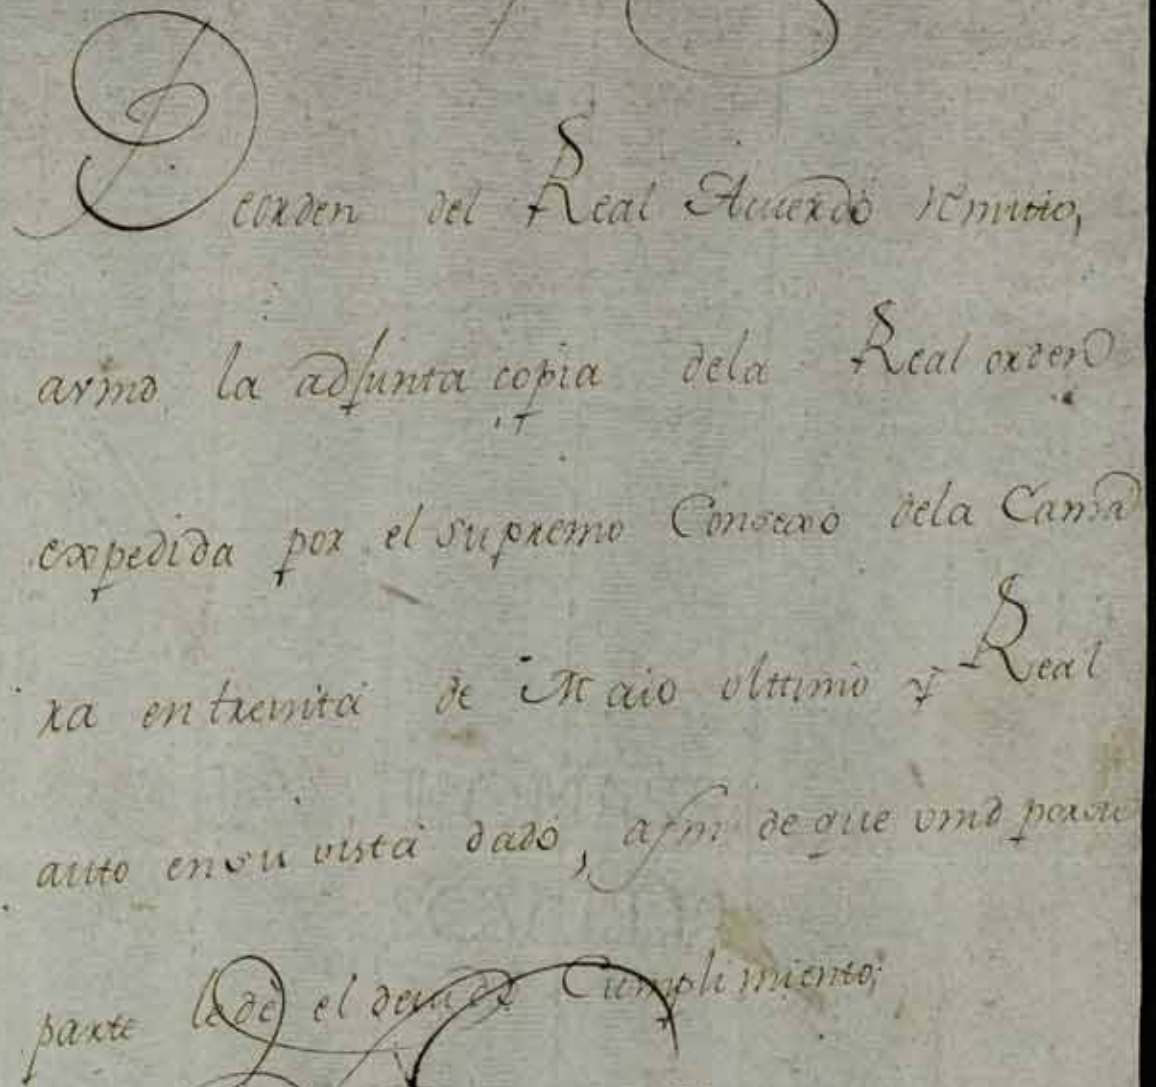 Deorden del Real Acuerdo remitto,
avmd, la adjunta copia dela Real orden
expedida por el supremo Consexo dela Cama
ra en treinta de Maio vlttimo y Real
auto ensu vista dado, afin de que vmd porsu
parte ledè el deuido Cumplimiento;